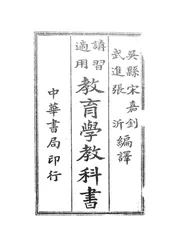 吳縣宋嘉釗
武進張沂編譯
講習適用
教育學教科書
中華書局印行